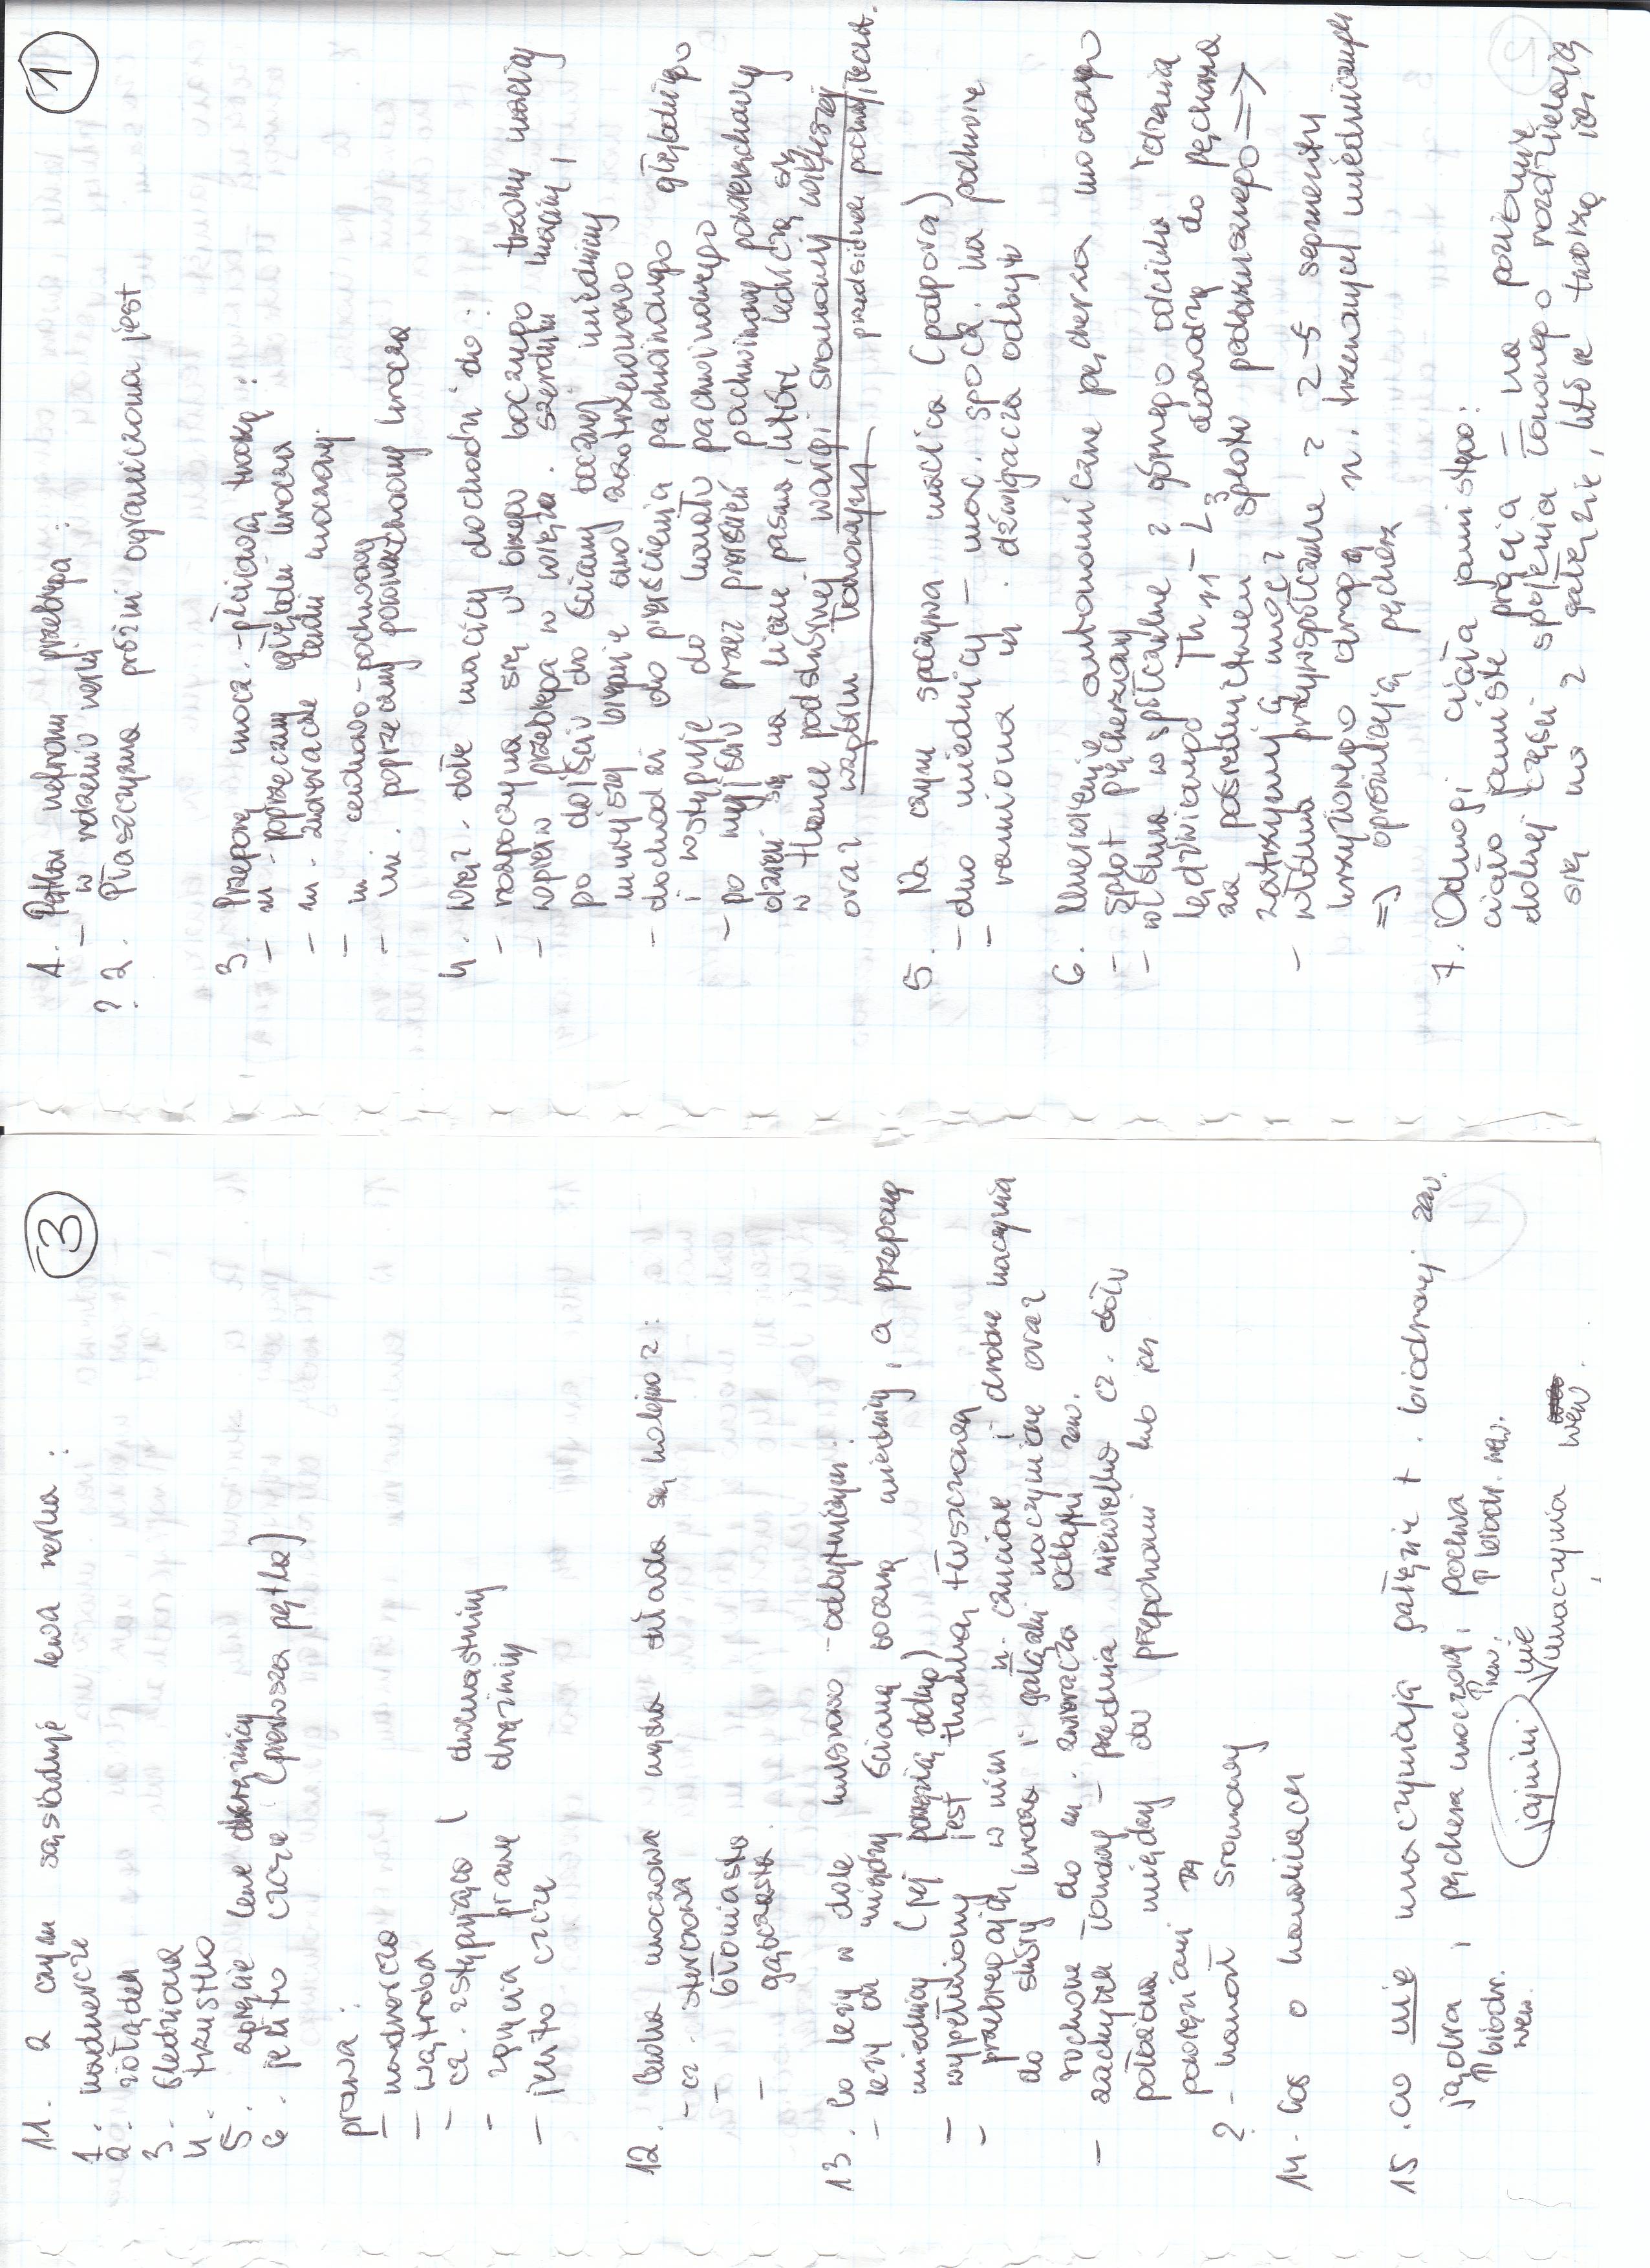 1
1. Pętla nefronu przebiega:
- w rdzeniu nerki
? 2. Płaszczyzna próżni ograniczona jest
3. Przeponę mocz.-płciową tworzą:
- m. poprzeczny głęboki krocza
- m. zwieracz cewki moczowej
- m. cewkowo-pochwowy
- m. poprzeczny powierzchowny krocza
4. Więz. obłe macicy dochodzi do:
- rozpoczyna się u brzegu bocznego trzonu macicy
- wpierw przebiega w więza. szerokim macicy,
po dojściu do ściany bocznej miednicy
mniejszej biegnie zaotrzewnowo
- dochodzi do pierścienia pachwinowego głębokiego
i wstępuje do kanału pachwinowego
- po wyjściu przez pierścień pachwinowy powierzchowny
dzieli się na liczne pasma, które kończą się
w tkance podskórnej wargi sromowej większej
oraz wzgórku łonowym, przedsionku pochwy, cewk.
5. Na czym spoczywa macica (podpora)
- dno miednicy - moc. spocz. na pochwie
- ramiona m. dźwigacza odbytu
6. Unerwienie autonomiczne pęcherza moczowego
- splot pęcherzowy
- włókna współczulne z górnego odcinka rdzenia
lędźwiowego Th 11 - L3 dochodzą do pęcherza
za pośrednictwem splotu podbrzusznego =>
zatrzymują mocz
- włókna przywspółczulne z 2-5 segmentu
krzyżowego drogą n. trzewnych miednicznych
=> opróżniają pęcherz
7. Odnogi ciała jamistego:
ciało jamiste prącia - na poziomie
dolnej części spojenia łonowego rozdzielają
się na 2 gałęzie, które tworzą ich
3
11. Z czym sąsiaduje lewa nerka:
1. nadnercze
2. żołądek
3. śledziona
4. trzustka
5. zgięcie lewe okrężnicy
6. jelito czcze (pierwsza pętla)
prawa:
- nadnercza
- wątroba
- cz. zstępująca dwunastnicy
- zgięcie prawe okrężnicy
- jelito czcze
12. Cewka moczowa męska składa się kolejno z:
- cz. sterczowa
- błoniasta
- gąbczasta
13. Co leży w dole kulszowo-odbytniczym:
- leży on między ścianą boczną miednicy, a przeponą
miednicy (jej powięzią dolną)
- wypełniony jest tkanką tłuszczową
- przebiegają w nim n. czuciowe i drobne naczynia
do skóry krocza i gałązki naczyniowe oraz
ruchowe do m. zwieracza odbytu zew.
- zachyłek łonowy - przednia niewielka cz. dołu
położona między do przeponami lub ich
powięziami
? - kanał sromowy
14. Coś o kanalikach
15. co nie unaczyniają gałęzie t. biodrowej zew.
jądra i pęcherz moczowy, pochwa
↑ biodr. wew. ↑ wew. ↑ biodr. wew.
jajniki nie
unaczynia wew.